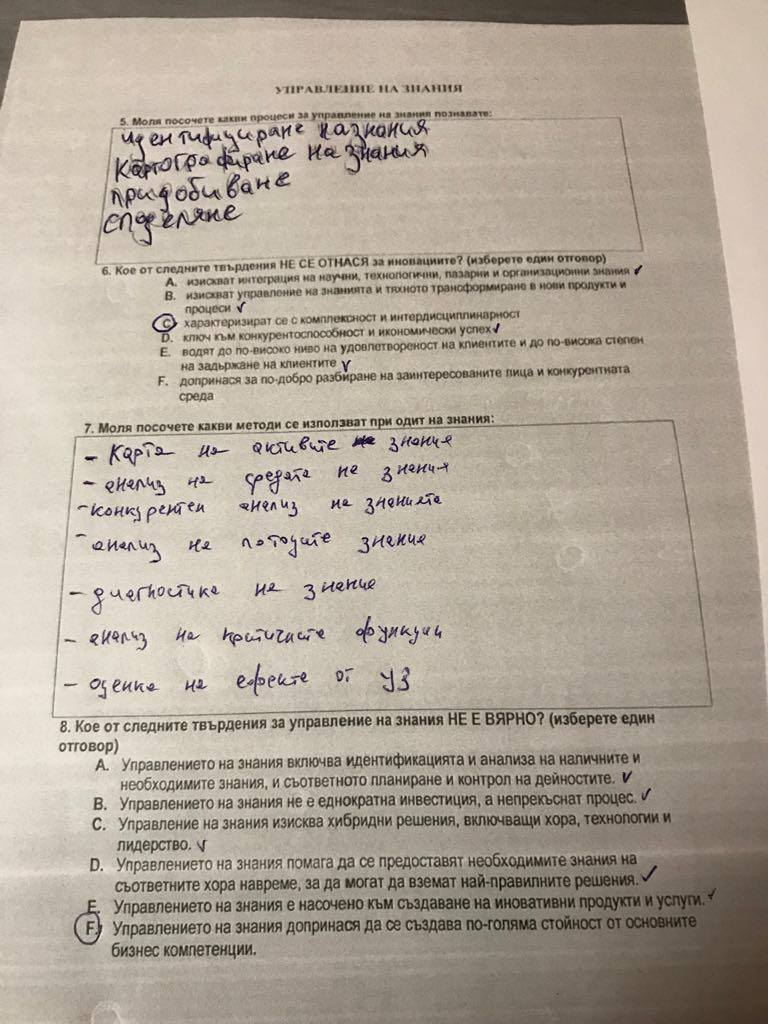 УПРАВЛЕНИЕ НА ЗНАНИЯ
5. Моля посочете какви процеси за управление на знания познавате:
идентифициране на знания
Картографиране на знания
придобиване
споделяне
6. Кое от следните твърдения НЕ СЕ ОТНАСЯ за иновациите? (изберете един отговор)
A. изискват интеграция на научни, технологични, пазарни и организационни знания ✓
B. изискват управление на знанията и тяхното трансформиране в нови продукти и
процеси ✓
C. характеризират се с комплексност и интердисциплинарност
D. ключ към конкурентоспособност и икономически успех ✓
E. водят до по-високо ниво на удовлетвореност на клиентите и до по-висока степен
на задържане на клиентите ✓
F. допринася за по-добро разбиране на заинтересованите лица и конкурентната
среда
7. Моля посочете какви методи се използват при одит на знания:
- Карта на активите знания
- анализ на средата на знания
- конкурентен анализ на знанията
- анализ на потоците знания
- диагностика на знания
- анализ на критичните функции
- оценка на ефекта от УЗ
8. Кое от следните твърдения за управление на знания НЕ Е ВЯРНО? (изберете един
отговор)
A. Управлението на знания включва идентификацията и анализа на наличните и
необходимите знания, и съответното планиране и контрол на дейностите. ✓
B. Управлението на знания не е еднократна инвестиция, а непрекъснат процес. ✓
C. Управление на знания изисква хибридни решения, включващи хора, технологии и
лидерство. ✓
D. Управлението на знания помага да се предоставят необходимите знания на
съответните хора навреме, за да могат да вземат най-правилните решения. ✓
E. Управлението на знания е насочено към създаване на иновативни продукти и услуги. ✓
F. Управлението на знания допринася да се създава по-голяма стойност от основните
бизнес компетенции.